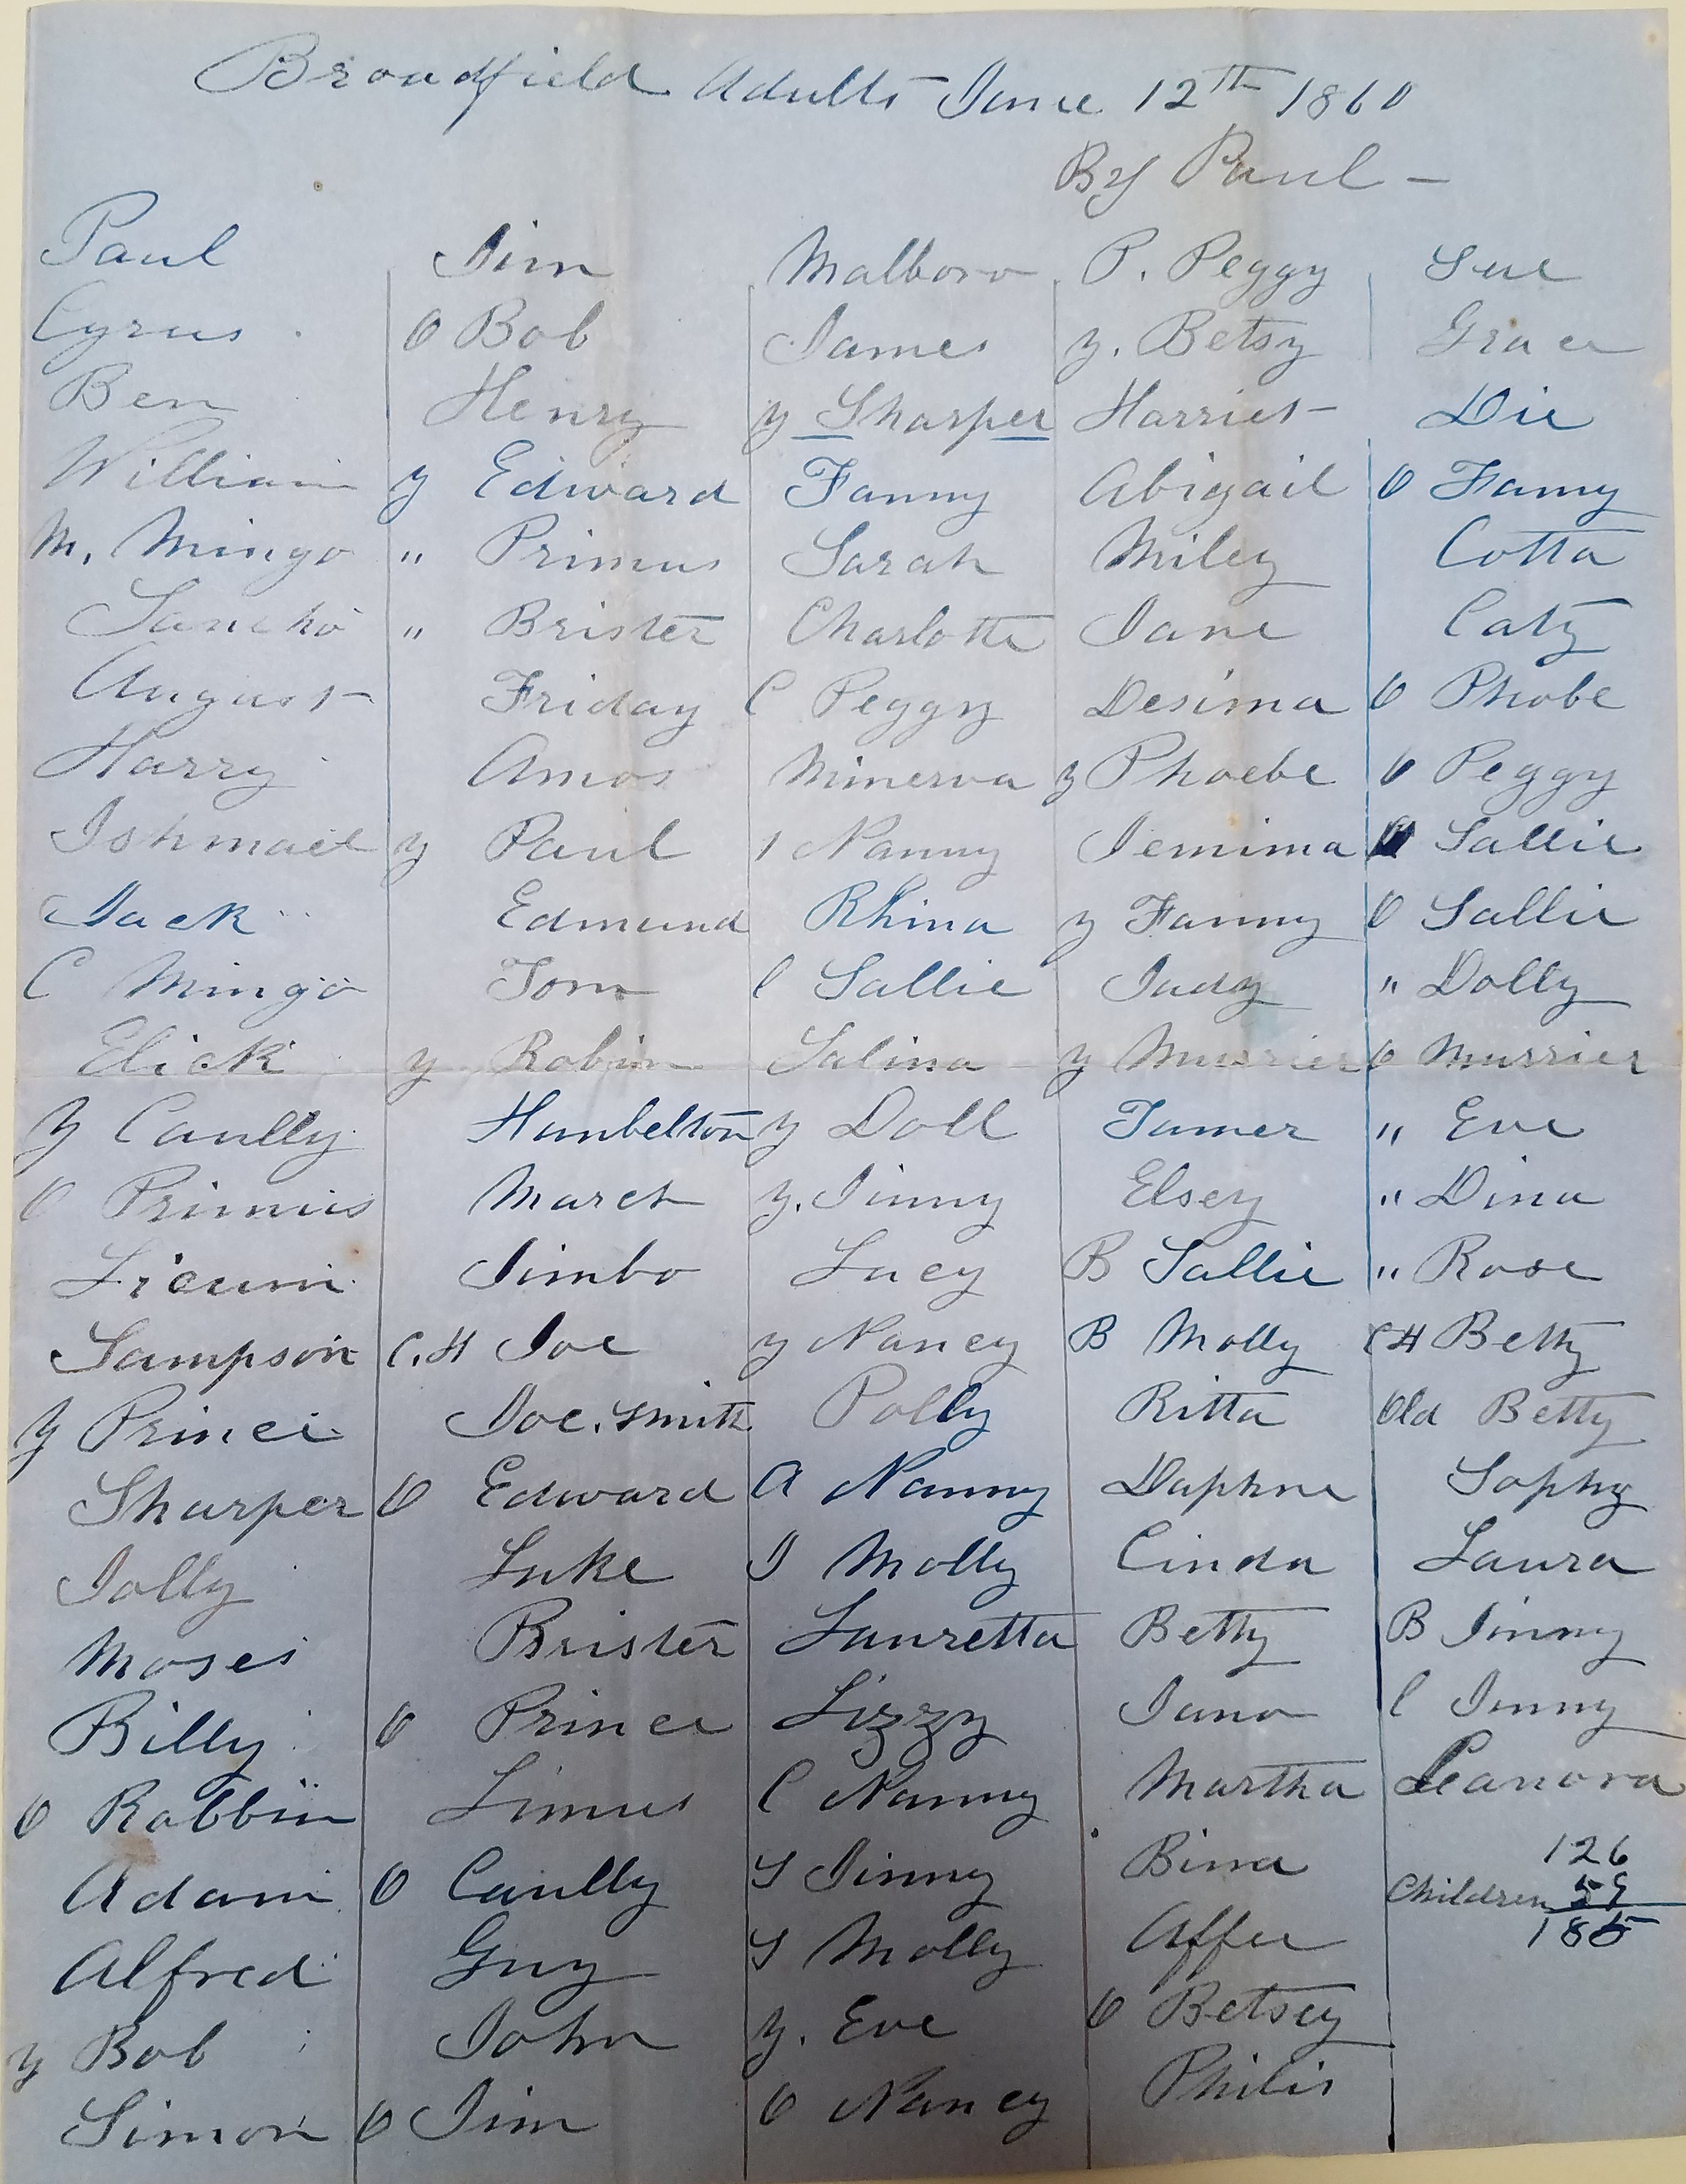 Broadfield Adults June 12th 1860
By Paul -
Paul Jim Malboro P. Peggy Sue
Cyrus O Bob James y. Betsy Grace
Ben Henry y Sharper Harriet Die
William y Edward Fanny Abigail O Fanny
M. Mingo " Primus Sarah Miley Cotta
Sancho " Brister Charlotte Jane Caty
August Friday C Peggy Desima O Phobe
Harry Amos Minerva y Phoebe O Peggy
Ishmael y Paul 1 Nanny Jemima Sallie
Jack Edmund Rhina y Fanny O Sallie
C Mingo Tom C Sallie Judy " Dolly
Elick y Robin Salina y Murrier O Murrier
y Caully Hambelton y Doll Tamer " Eve
O Primus March y. Jinny Elsey " Dina
Jimbo Lucy B Sallie " Rose
Sampson C.H Joe y Nancy B Molly CH Betty
y Prince Joe. Smith Polly Ritta Old Betty
Sharper O Edward A Nanny Daphne Sophy
Jolly Luke J Molly Cinda Laura
Moses Brister Lauretta Betty B Jinny
Billy O Prince Lizzy Jane C Jinny
O Robbin Limus C Nanny Martha Leanora
Adam O Caully S Jinny Bina 126
Children 59
Alfred Guy S Molly Affee 185
y Bob John y. Eve O Betsey
Simon O Jim O Nancy Philis